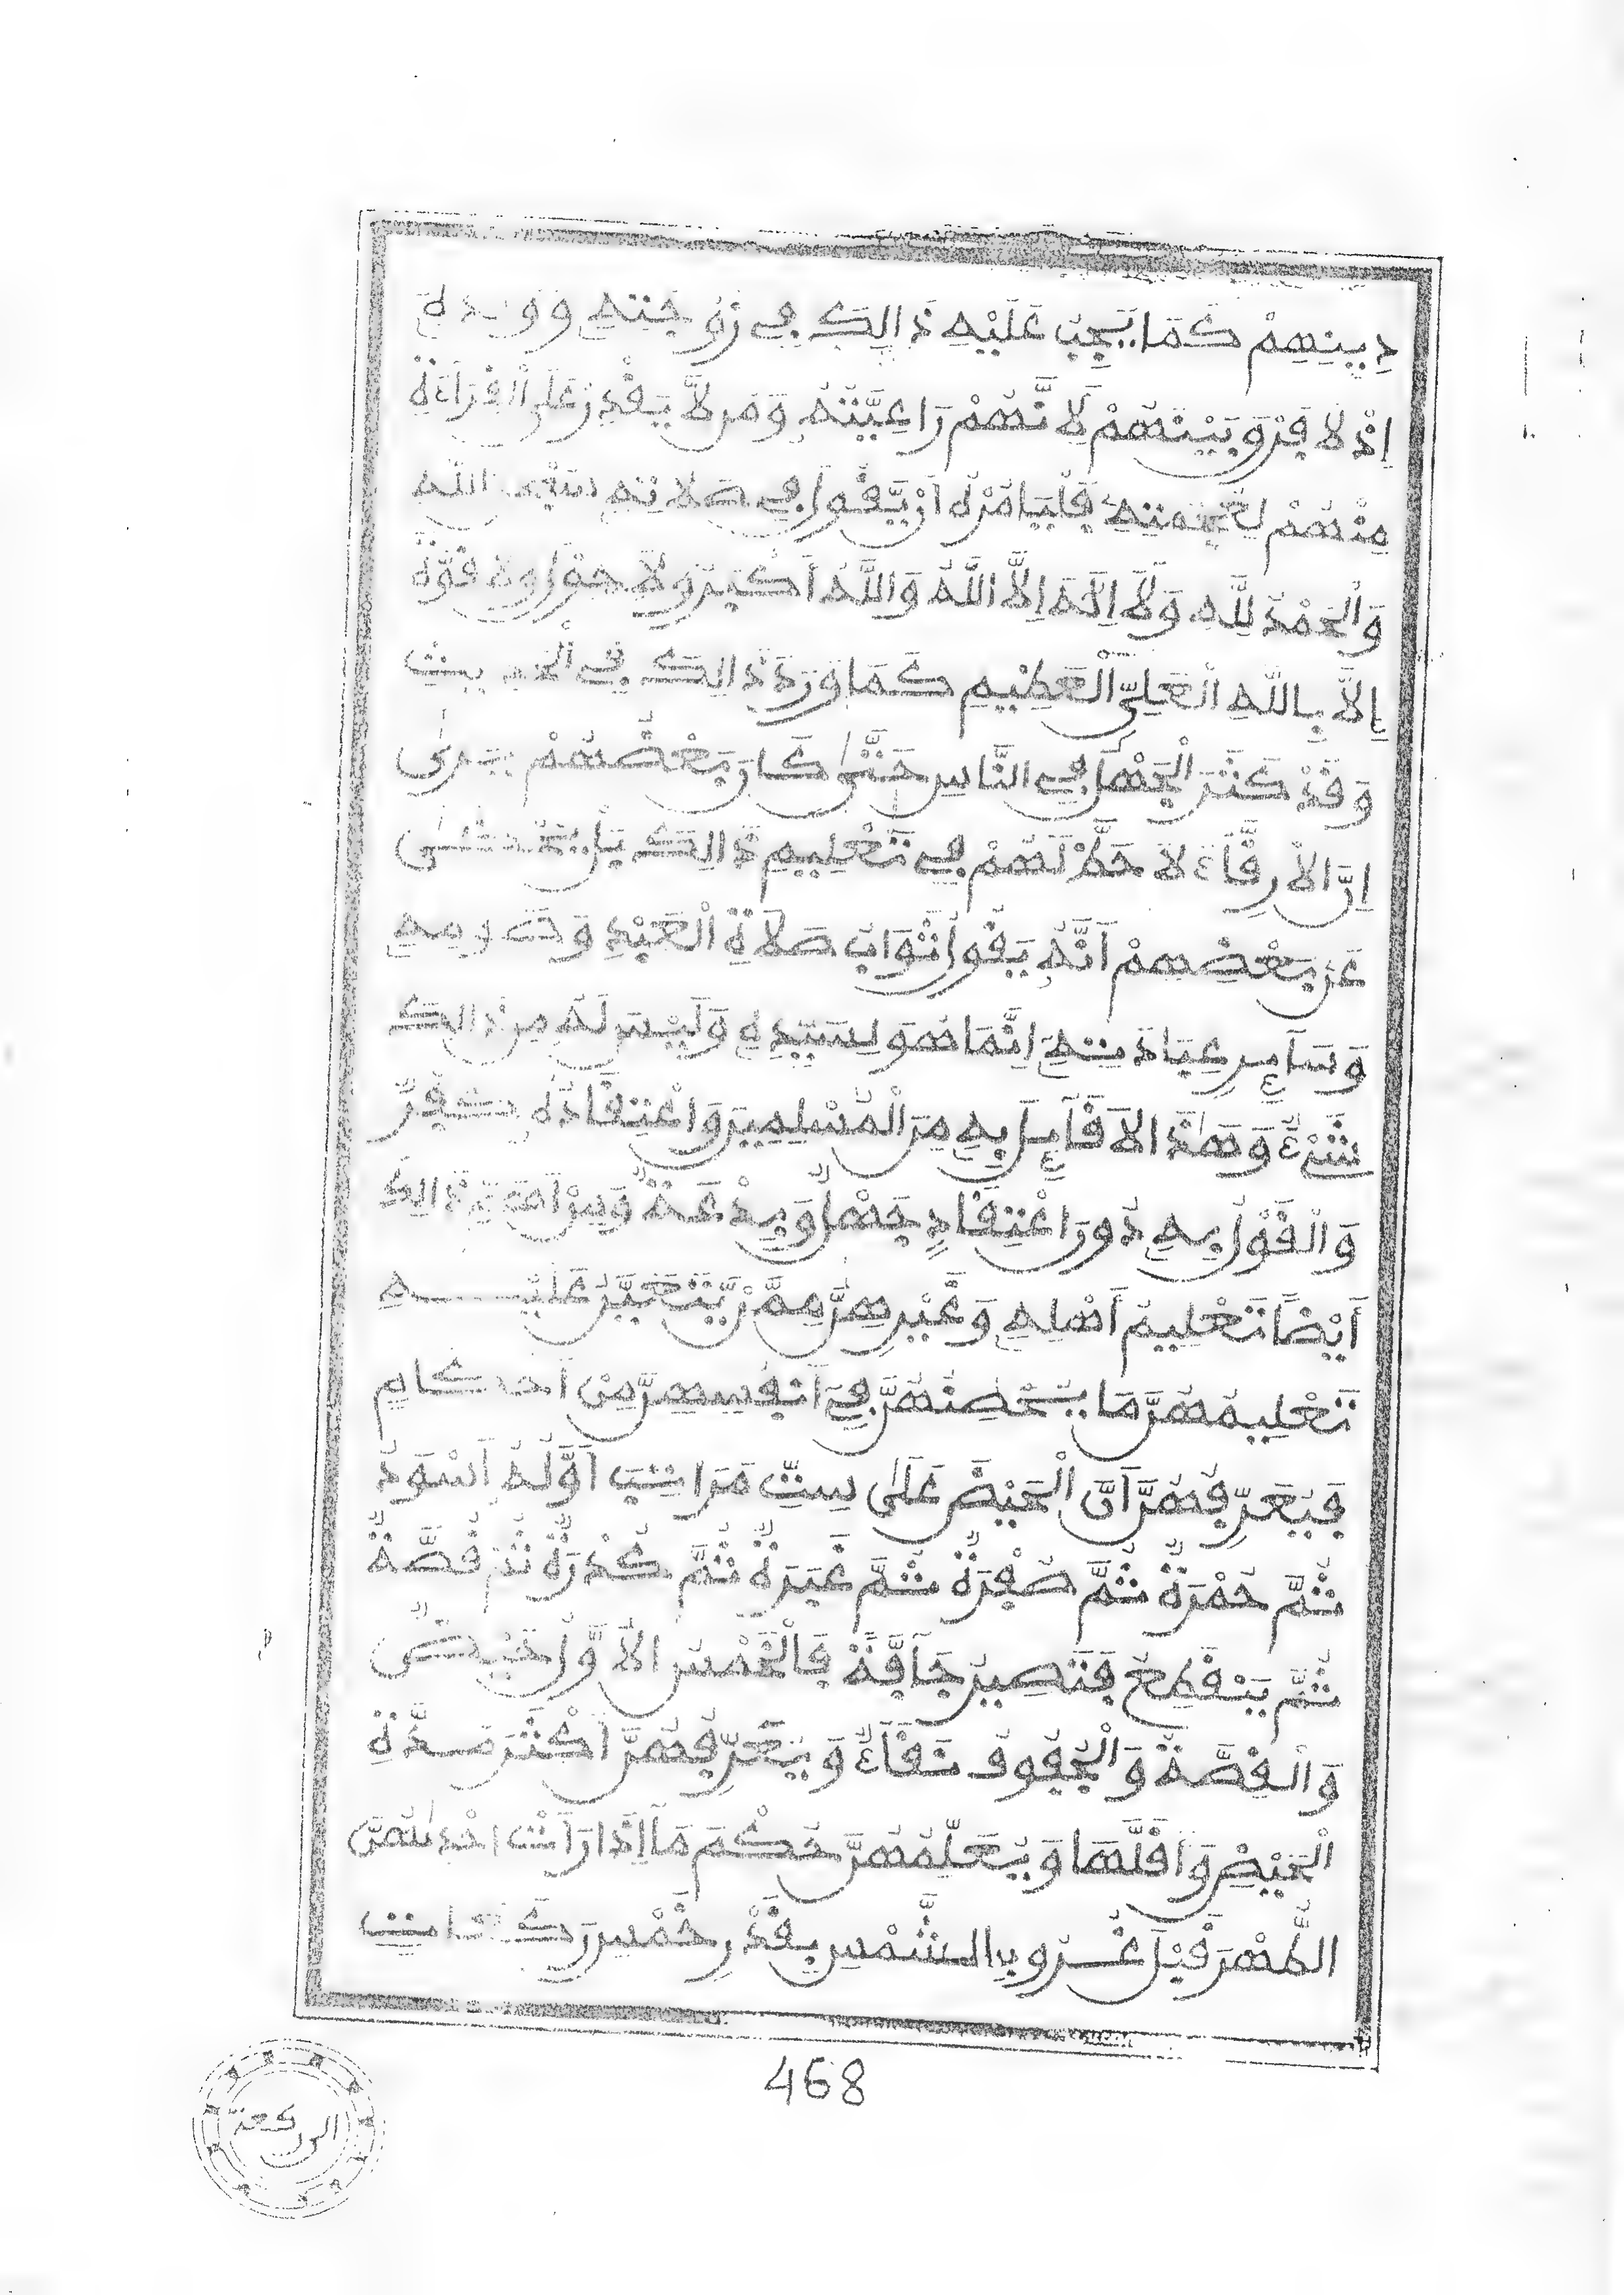 دِينِهِمْ كَمَا يَجِبُ عَلَيْهِ ذَالِكَ فِي زَوْجَتِهِ وَوَلَدِهِ
إِذْ لَا فَرْقَ بَيْنَهُمْ لِأَنَّهُمْ رَاعِيَّتُهُ وَمَن لَّا يَقْدِرُ عَلَى الْقِرَاءَةِ
مِنْهُمْ لِعُجْمَتِهِ فَلْيَامُرْهُ أَنْ يَّقُولَ فِي صَلَاتِهِ سُبْحَانَ اللَّهِ
وَالْحَمْدُ لِلَّهِ وَلَا إِلَٰهَ إِلَّا اللَّهُ وَاللَّهُ أَكْبَرُ وَلَا حَوْلَ وَلَا قُوَّةَ
إِلَّا بِاللَّهِ الْعَلِيِّ الْعَظِيمِ كَمَا وَرَدَ ذَالِكَ فِي الْحَدِيثِ
وَقَدْ كَثُرَ الْجَهْلُ فِي النَّاسِ حَتَّىٰ كَانَ بَعْضُهُمْ يَرَىٰ
إِنَّ الْأَرِقَّاءَ لَا حَظَّ لَهُمْ فِي تَعْلِيمِ ذَالِكَ بَلْ يُحْكَىٰ
عَن بَعْضِهِمْ أَنَّهُ يَقُولُ ثَوَابُ صَلَاةِ الْعَبْدِ وَصَوْمِهِ
وَسَائِرِ عِبَادَتِهِ إِنَّمَا هُوَ لِسَيِّدِهِ وَلَيْسَ لَهُ مِن ذَالِكَ
شَيْءٌ وَهَٰذَا لَا قَائِلَ بِهِ مِنَ الْمُسْلِمِينَ وَاعْتِقَادُهُ كُفْرٌ
وَالْقَوْلُ بِهِ دُونَ اعْتِقَادٍ جَهْلٌ وَبِدْعَةٌ وَمِنْ ذَالِكَ
أَيْضًا تَعْلِيمُ أَهْلِهِ وَغَيْرِهِنَّ مِمَّنْ يَّتَعَيَّنُ عَلَيْهِ
تَعْلِيمُهُنَّ مَا يَخُصُّهُنَّ فِي أَنفُسِهِنَّ مِنْ أَحْكَامٍ
فَيُعَرِّفُهُنَّ أَنَّ الْحَيْضَ عَلَىٰ سِتِّ مَرَاتِبَ أَوَّلُهُ أَسْوَدُ
ثُمَّ حُمْرَةٌ ثُمَّ صُفْرَةٌ ثُمَّ غُبْرَةٌ ثُمَّ كُدْرَةٌ ثُمَّ قَصَّةٌ
ثُمَّ يَنْقَطِعُ فَتَصِيرُ جَافَّةً فَالْخَمْسُ الْأُوَلُ حَيْضٌ
وَالْقَصَّةُ وَالْجُفُوفُ نَقَاءٌ وَيُعَرِّفُهُنَّ أَكْثَرَ مُدَّةِ
الْحَيْضِ وَأَقَلَّهَا وَيُعَلِّمُهُنَّ حُكْمَ مَا إِذَا رَأَتْ إِحْدَاهُنَّ
الطُّهْرَ قَبْلَ غُرُوبِ الشَّمْسِ بِقَدْرِ خَمْسِ رَكَعَاتٍ
468